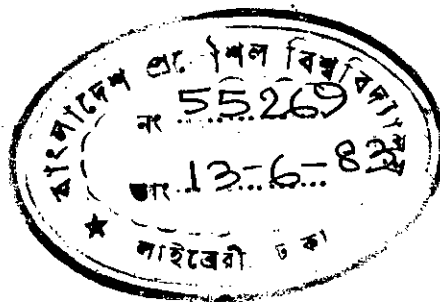 বাংলাদেশ প্রকৌশল বিশ্ববিদ্যালয়
নং 55269
তাং 13-6-83
লাইব্রেরী ঢাকা